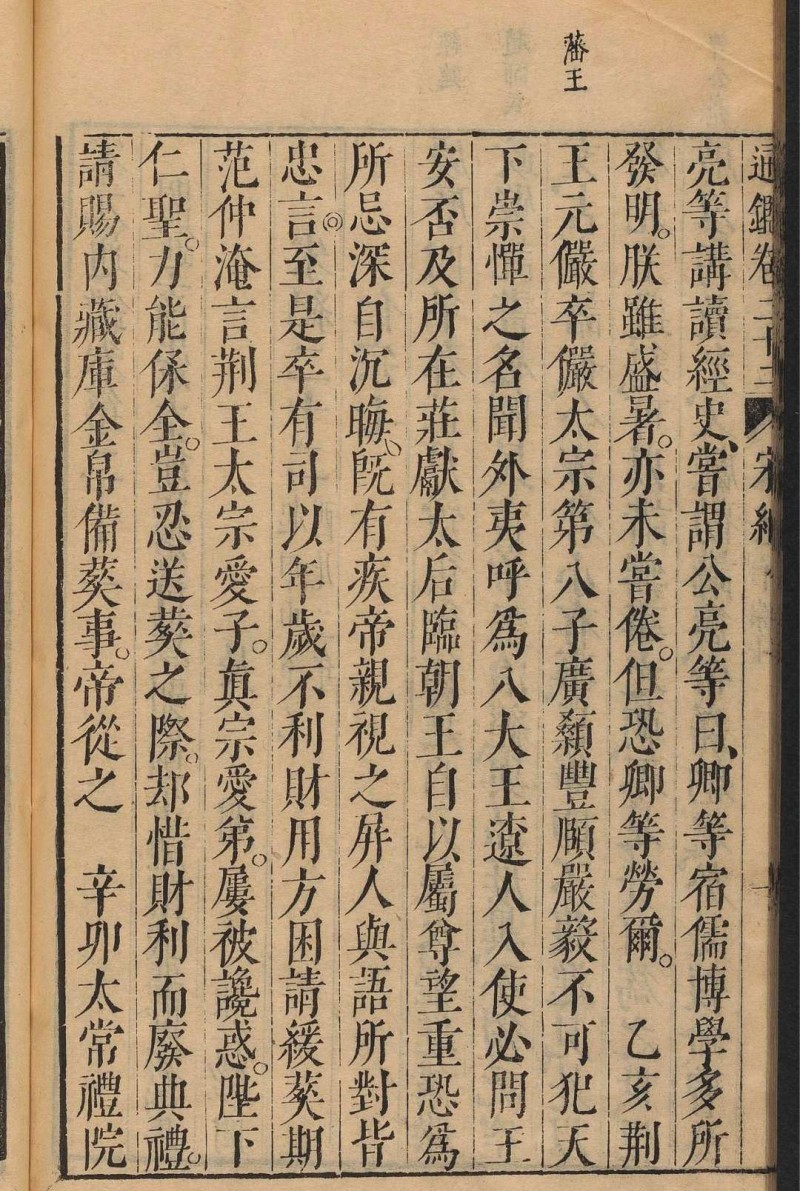 藩王
通鑑卷二十三 宋紀
亮等講讀經史、嘗謂公亮等曰、卿等宿儒博學多所
發明。朕雖盛暑。亦未嘗倦。但恐卿等勞爾。 乙亥荆
王元儼卒儼太宗第八子廣顙豐頤嚴毅不可犯天
下崇憚之名聞外夷呼爲八大王遼人入使必問王
安否及所在莊獻太后臨朝王自以屬尊望重恐爲
所忌深自沉晦、旣有疾帝親視之屛人與語所對皆
忠言◎至是卒有司以年歲不利財用方困請緩葬期
范仲淹言荆王太宗愛子。眞宗愛第。屢被讒惑。陛下
仁聖。力能保全。豈忍送葬之際。却惜財利而廢典禮。
請賜内藏庫金帛備葬事。帝從之 辛卯太常禮院